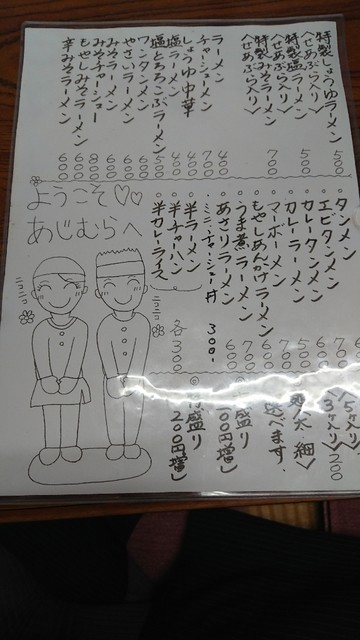 特製しょうゆラーメン 500
〈せあぶら入り〉
特製塩ラーメン 500
〈せあぶら入り〉
特製みそラーメン 700
〈せあぶら入り〉
ラーメン 400
チャーシューメン 700
しょうゆ中華 400
塩ラーメン 400
塩とろろこんぶラーメン 500
ワンタンメン 600
やさいラーメン 600
みそラーメン 600
みそチャーシュー 800
もやしみそラーメン 600
辛みそラーメン 600
タンメン
エビタンメン
カレータンメン
カレーラーメン
マーボーメン
もやしあんかけラーメン
うま煮ラーメン
あさりラーメン
ミニチャーシュー丼 300.
半ラーメン
半チャーハン
半カレーライス
各300
ようこそ♡♡
あじむらへ
ニコニコ
ニコニコ
〈5ヶ入り〉
〈3ヶ入り〉 200
太 細〉
選べます.
盛り
200円増し
盛り
200円増し